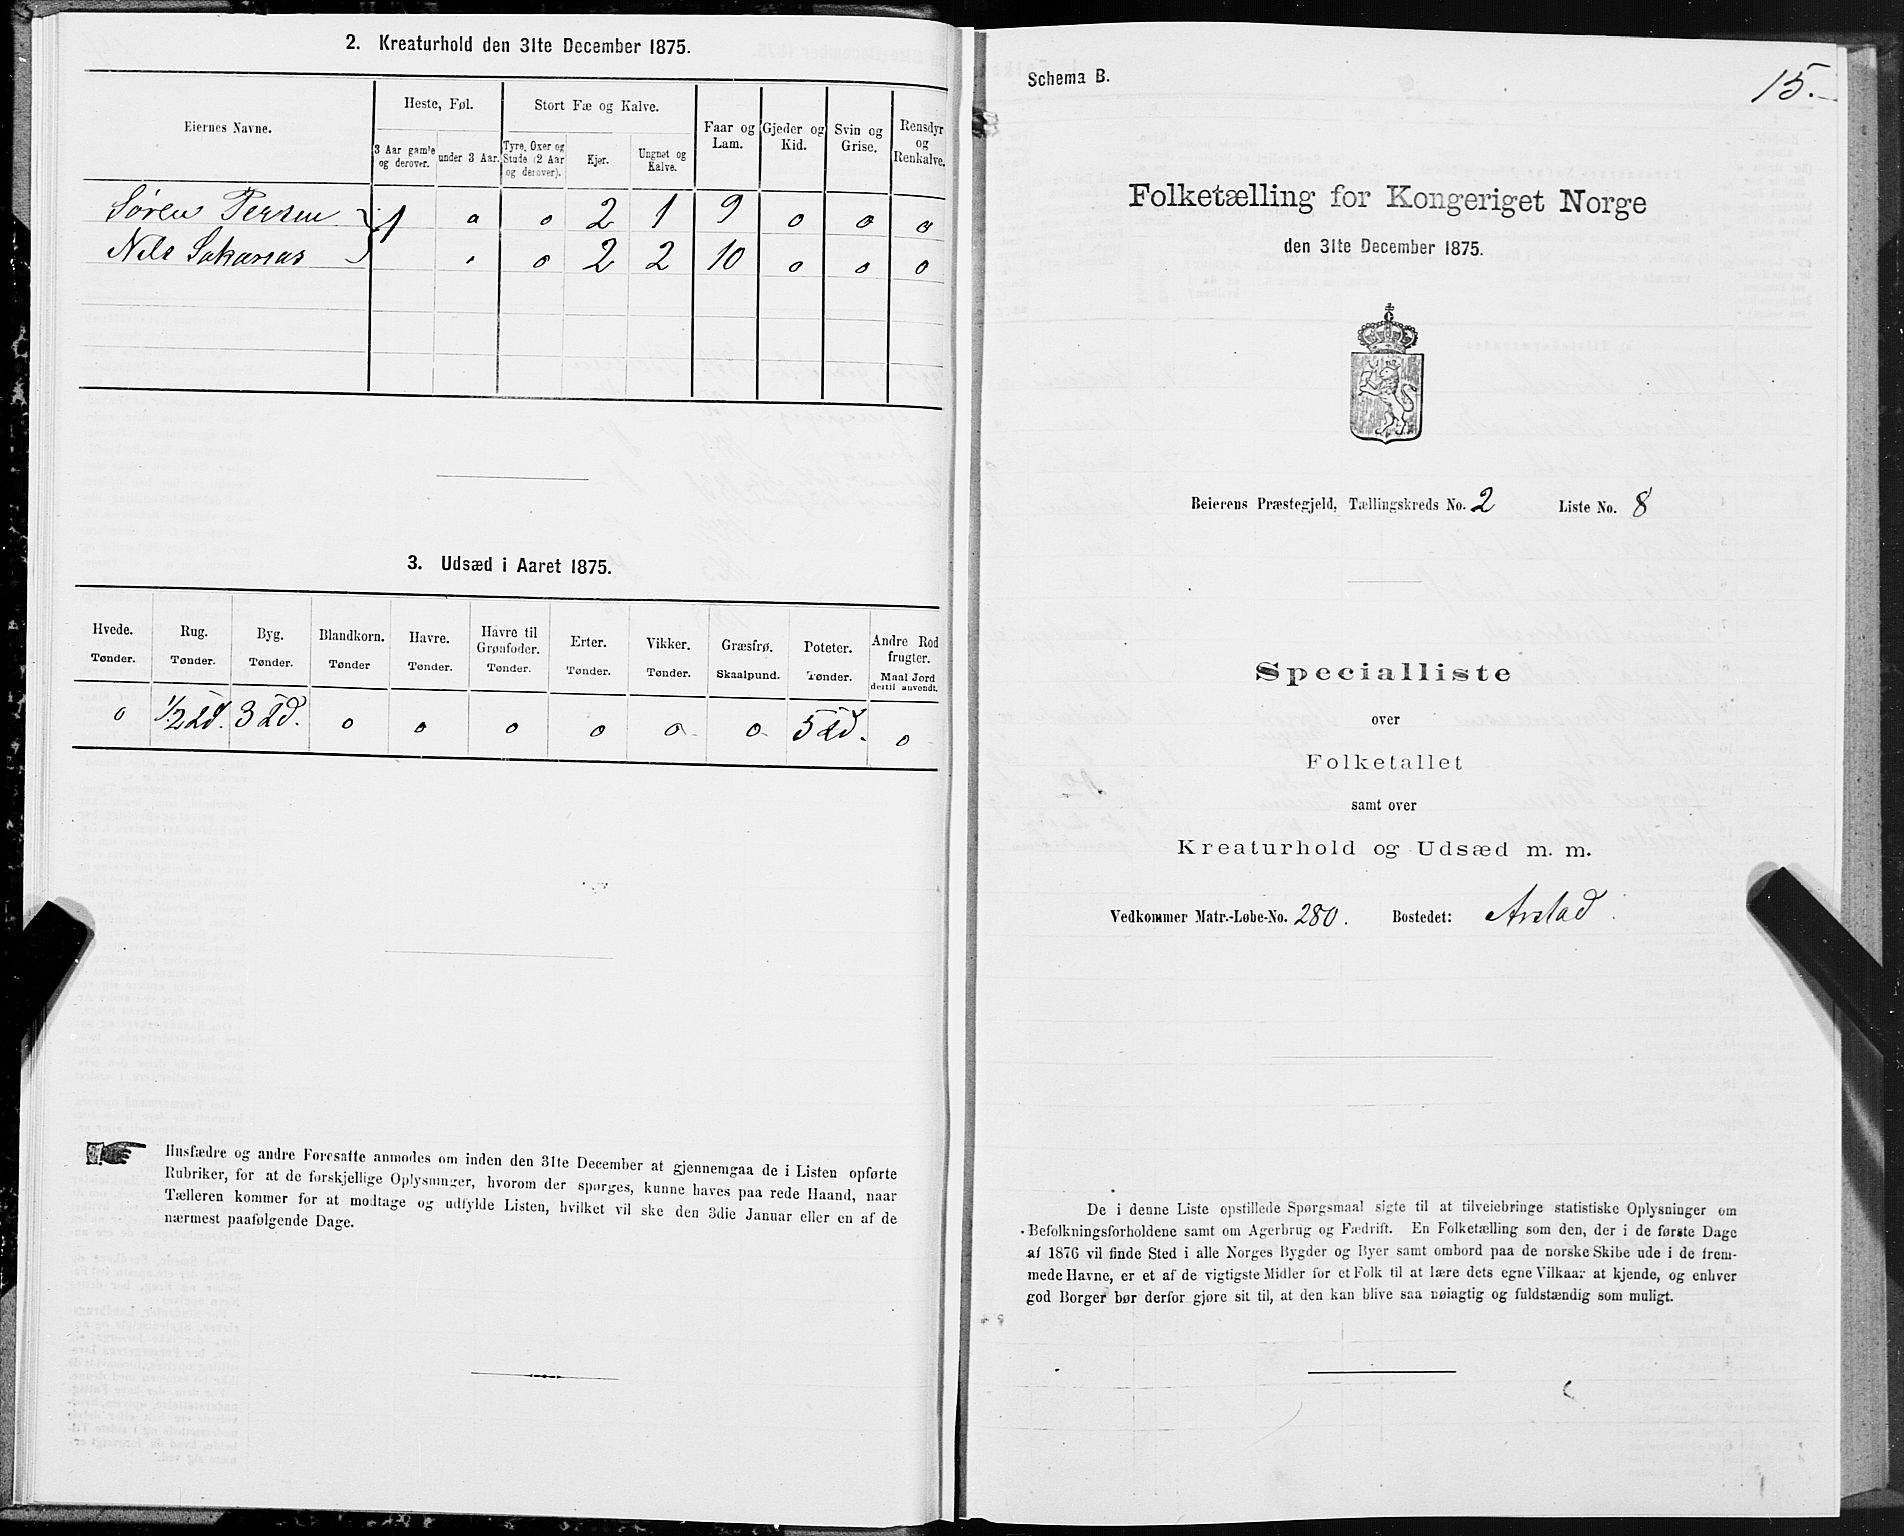 2. Kreaturhold den 31te December 1875.
Eiernes Navne.
Heste, Føl.
Stort Fæ og Kalve.
Faar og Lam.
Gjeder og Kid.
Svin og Grise.
Rensdyr og Renkalve.
3 Aar gamle og derover.
under 3 Aar.
Tyre, Oxer og Stude (2 Aar og derover).
Kjør.
Ungnøt og Kalve.
Søren Persen 1 o o 2 1 9 o o o
Nils Sakarias o 2 2 10 o o o
3. Udsæd i Aaret 1875.
Hvede. Rug. Byg. Blandkorn. Havre. Havre til Grønfoder. Erter. Vikker. Græsfrø. Poteter. Andre Rodfrugter.
Tønder. Tønder. Tønder. Tønder Tønder. Tønder. Tønder. Tønder. Skaalpund. Tønder. Maal Jord dertil anvendt.
o 1/2 Td. 3 Td. o o o o o o 5 Td. o
Husfædre og andre Foresatte anmodes om inden den 31te December at gjennemgaa de i Listen opførte
Rubriker, for at de forskjellige Oplysninger, hvorom der spørges, kunne haves paa rede Haand, naar
Tælleren kommer for at modtage og udfylde Listen, hvilket vil ske den 3die Januar eller en af de
nærmest paafølgende Dage.
Schema B.
15.
Folketælling for Kongeriget Norge
den 31te December 1875.
Beierens Præstegjeld, Tællingskreds No. 2 Liste No. 8
Specialliste
over
Folketallet
samt over
Kreaturhold og Udsæd m. m.
Vedkommer Matr.-Løbe-No. 280. Bostedet: Arstad
De i denne Liste opstillede Spørgsmaal sigte til at tilveiebringe statistiske Oplysninger om
Befolkningsforholdene samt om Agerbrug og Fædrift. En Folketælling som den, der i de første Dage
af 1876 vil finde Sted i alle Norges Bygder og Byer samt ombord paa de norske Skibe ude i de frem-
mede Havne, er et af de vigtigste Midler for et Folk til at lære dets egne Vilkaar at kjende, og enhver
god Borger bør derfor gjøre sit til, at den kan blive saa nøiagtig og fuldstændig som muligt.